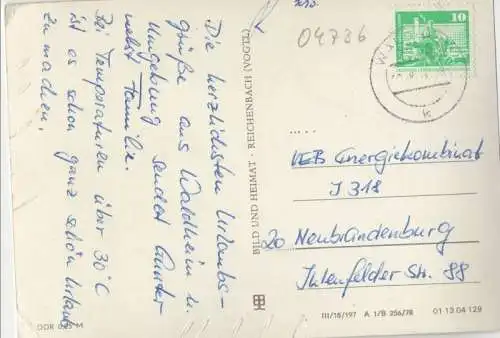 Die herzlichsten Urlaubs-
grüße aus Waldheim u.
Umgebung sendet Günter
nebst Familie.
Bei Temperaturen über 30°C
ist es schon ganz schön Urlaub
zu machen.
DDR M
BILD UND HEIMAT · REICHENBACH (VOGTL)
04736
10
VEB Energiekombinat
J 318
20 Neubrandenburg
Ihlenfelder Str. 88
III/18/197 A 1/B 256/78
01 13 04 129